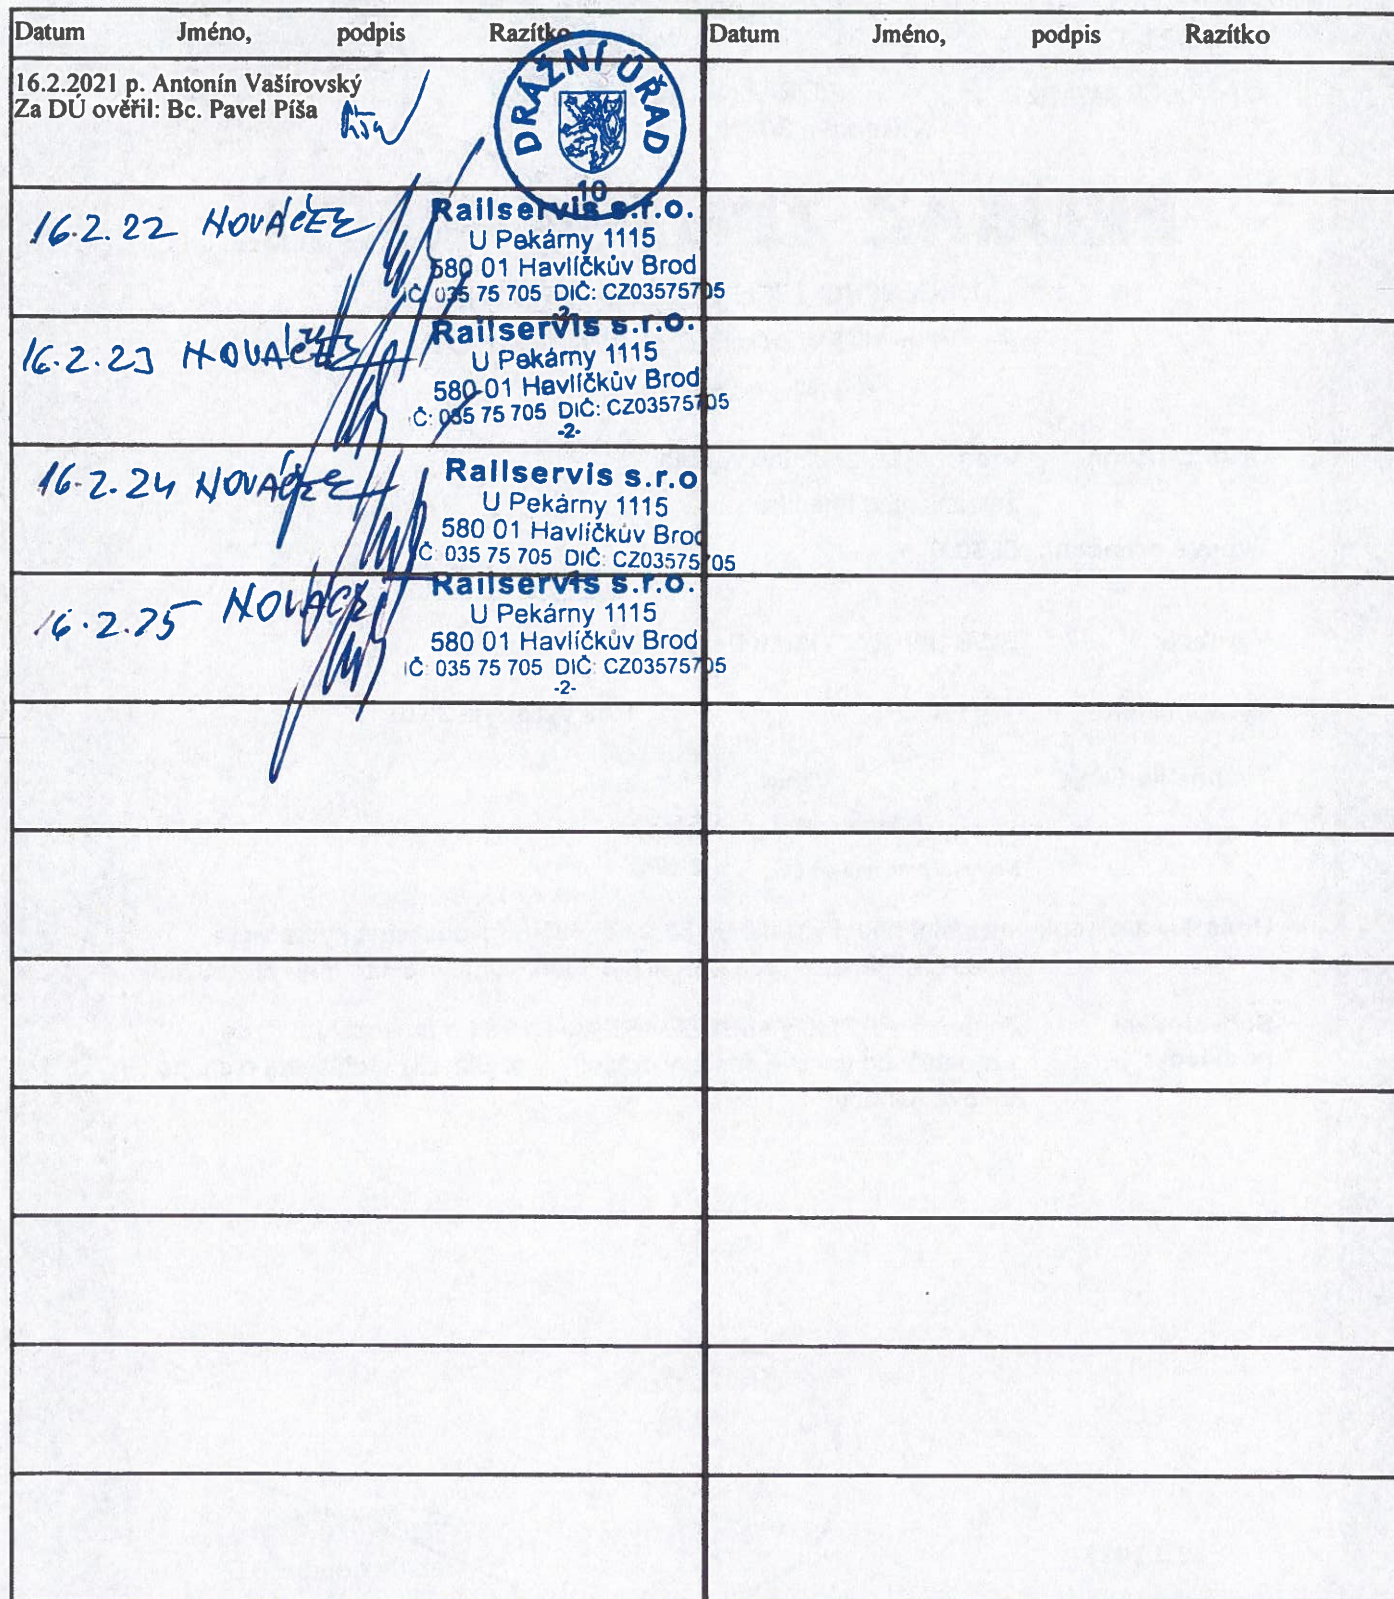 Datum Jméno, podpis Razítko
Datum Jméno, podpis Razítko
16.2.2021 p. Antonín Vašírovský
Za DÚ ověřil: Bc. Pavel Píša
DRÁŽNÍ ÚŘAD
10
16.2.22 NOVÁČEK
Railservis s.r.o.
U Pekárny 1115
580 01 Havlíčkův Brod
IČ: 035 75 705 DIČ: CZ03575705
16.2.23 NOVÁČEK
Railservis s.r.o.
U Pekárny 1115
580 01 Havlíčkův Brod
IČ: 035 75 705 DIČ: CZ03575705
-2-
16.2.24 NOVÁČEK
Railservis s.r.o
U Pekárny 1115
580 01 Havlíčkův Brod
IČ: 035 75 705 DIČ: CZ03575705
16.2.25 NOVÁČEK
Railservis s.r.o.
U Pekárny 1115
580 01 Havlíčkův Brod
IČ: 035 75 705 DIČ: CZ03575705
-2-